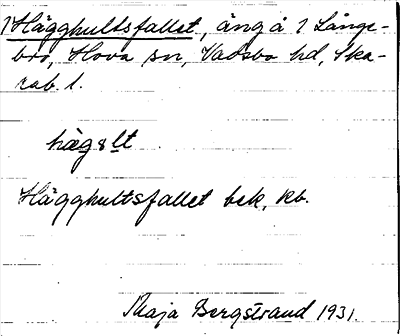 1 Hägghultsfallet, äng å 1 Långe-
bro, Hova sn, Vadsbo hd, Ska-
rab. l.
hägslt
Hägghultsfallet bek. kb.
Maja Bergstrand 1931.